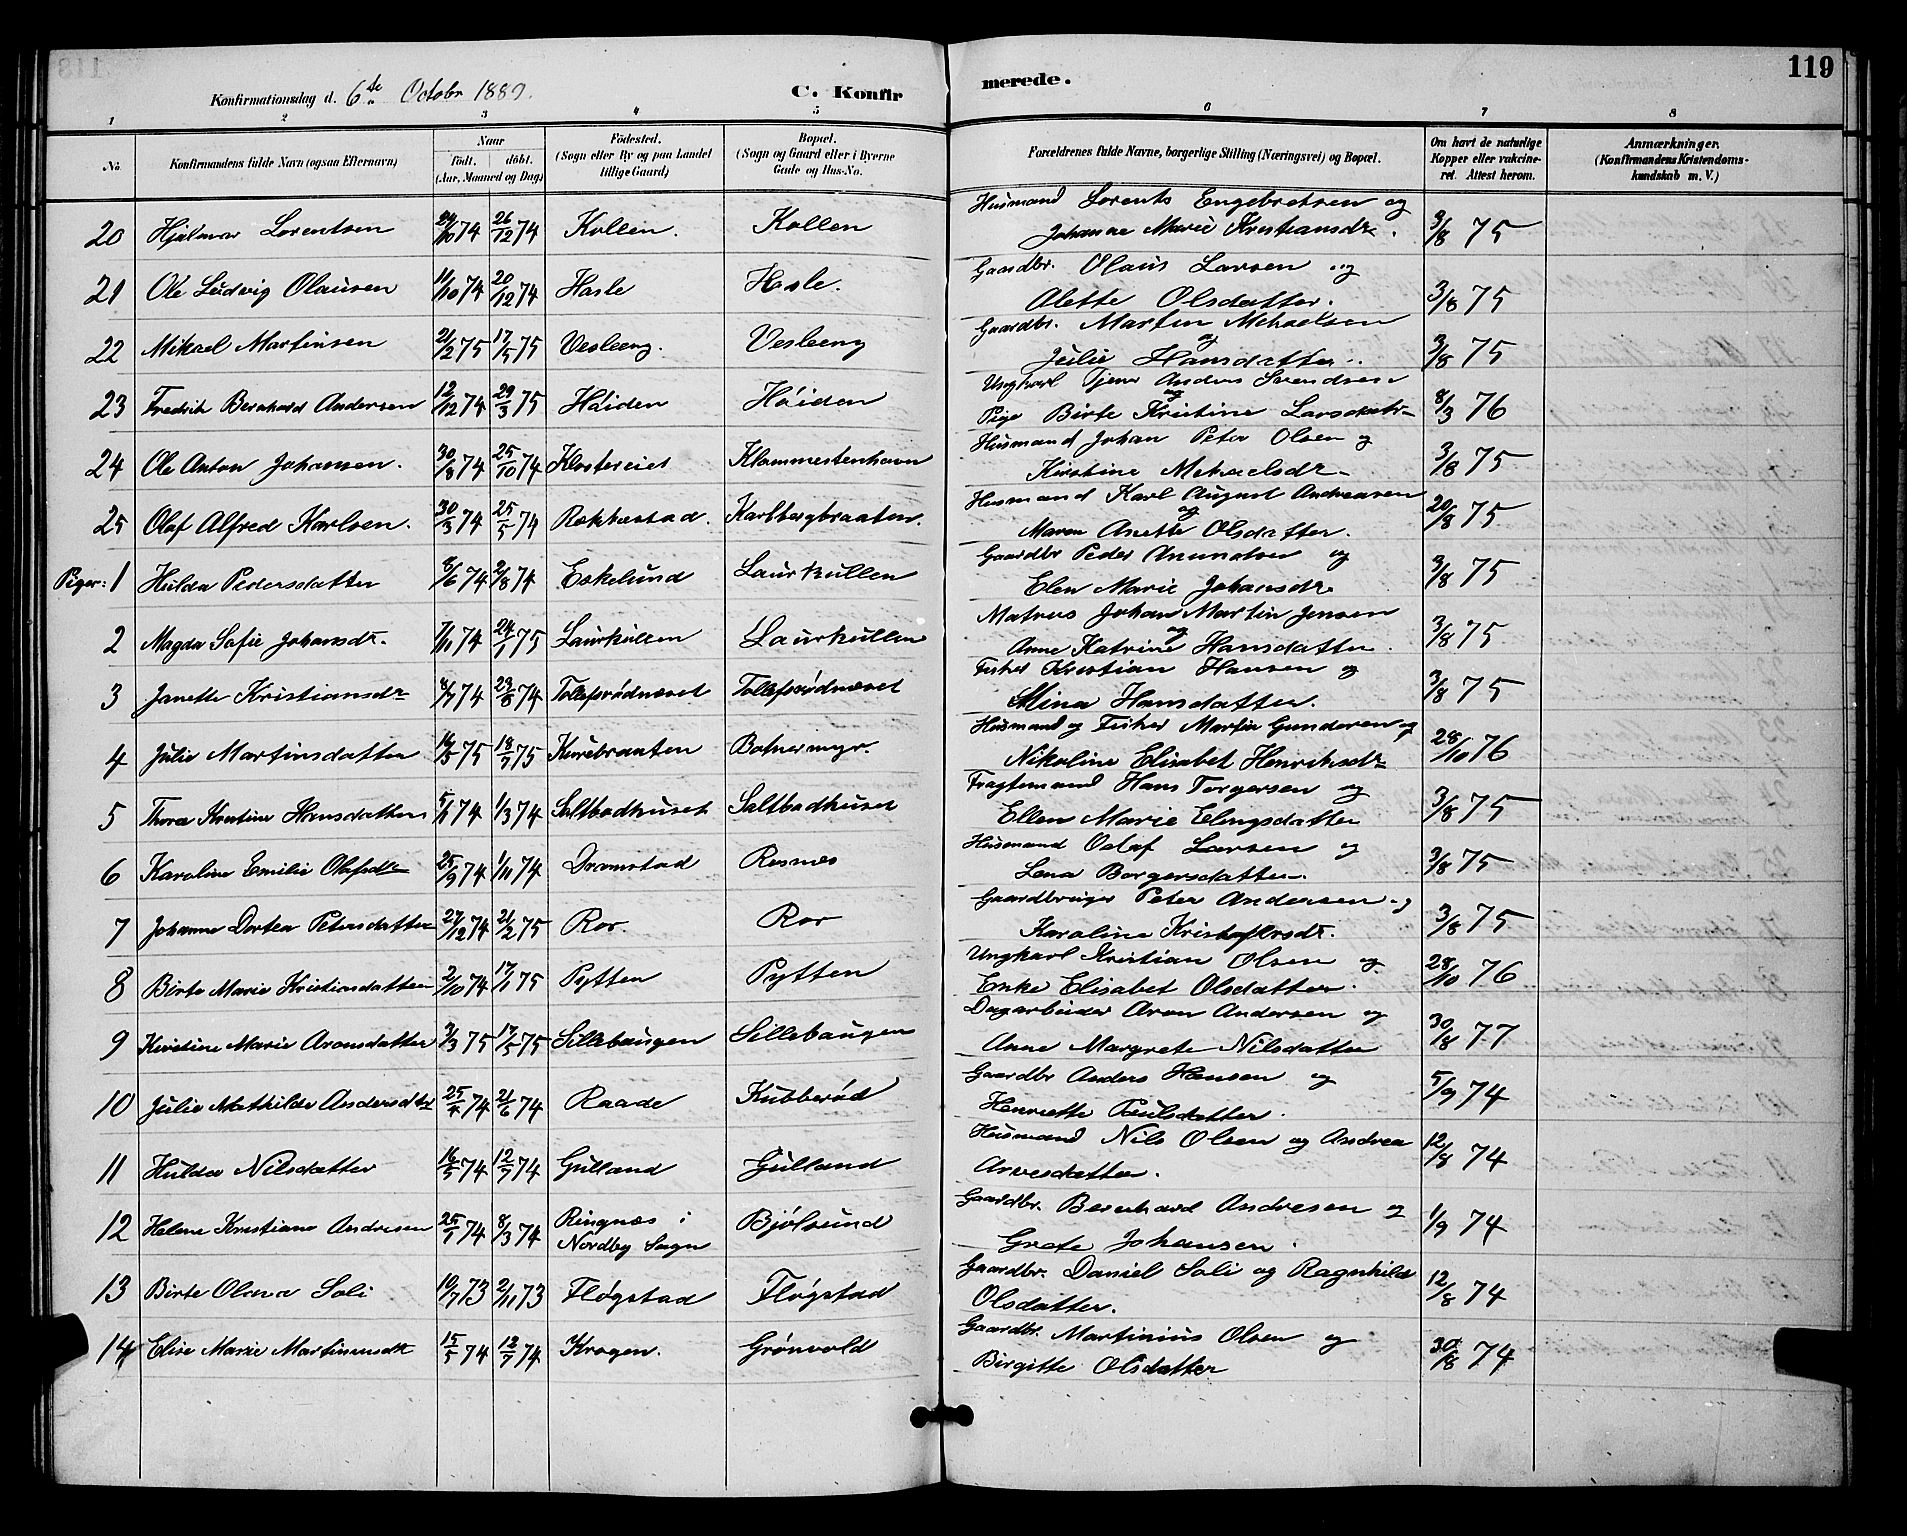 119
Konfirmationsdag d. 6te Octobr 1889. C. Konfirmerede.
1 2 3 4 5 6 7 8
No. Konfirmandens fulde Navn (ogsaa Efternavn) Naar födt. döbt. (Aar, Maaned og Dag) Födested. (Sogn eller By og paa Landet tillige Gaard) Bopæl. (Sogn og Gaard eller i Byerne Gade og Hus-No. Forældrenes fulde Navne, borgerlige Stilling (Næringsvei) og Bopæl. Om havt de naturlige Kopper eller vakcineret. Attest herom. Anmærkninger. (Konfirmandens Kristendomskundskab m. V.)
20 Hjalmar Lorentsen 29/10 74 26/12 74 Kollen. Kollen Husmand Lorents Engebretsen og
Johanne Marie Kristiansdr. 3/8 75
21 Ole Ludvig Olausen 11/10 74 20/12 74 Hasle Hasle. Gaardbr. Olaus Larsen og
Alette Olsdatter. 3/8 75
22 Mikael Martinsen 21/2 75 17/5 75 Vesleeng. Vesleeng Gaardbr. Martin Mehaelsen
og Julie Hansdatter. 3/8 75
23 Fredrik Bernhard Andersen 12/12 74 29/3 75 Høiden Høiden Ungkarl Tjener Anders Svendsen
og Pige Birte Kristine Larsdatr 8/3 76
24 Ole Anton Johansen. 30/8 74 25/10 74 Klostereiet Klommestenhavn Husmand Johan Peter Olsen og
Kirstine Mehaelsdr 3/8 75
25 Olaf Alfred Karlsen. 30/3 74 25/5 74 Rækkestad. Karlbergbraaten. Husmand Karl August Andreasen
og Maren Anette Olsdatter. 20/8 75
Piger: 1 Hulda Pedersdatter 8/6 74 2/8 74 Eekelund Laurkullen Gaardbr Peder Amundsen og
Elen Marie Johansdr 3/8 75
2 Magda Sofie Johansdr. 7/11 74 24/1 75 Laurkullen Laurkullen Matros Johan Martin Jensen
og Anne Katrine Hansdatter. 3/8 75
3 Janette Kristiansdr 4/7 74 23/8 74 Tollefsrødnæset Tollefsrødnæset Fisker Kristian Hansen og
Mina Hansdatter. 3/8 75
4 Julie Martinsdatter 16/5 75 18/7 75 Kurebraaten Botnermyr. Husmand og Fisker Martin Gundersen og
Nikoline Elisabet Henriksdr 28/10 76
5 Thora Kristine Hansdatter 5/1 74 1/3 74 Saltbodhuset Saltbadhuset Fragtemand Hans Torgersen og
Ellen Marie Elingsdatter 3/8 75
6 Karoline Emilie Olafsdtr 25/9 74 1/11 74 Dramstad Resnes Husmand Oolaf Larsen og
Lena Borgersdatter. 3/8 75
7 Johanne Dortea Petersdatter 27/12 74 21/2 75 Ror. Ror Gaardbruger Peter Andersen og
Karoline Kristofersdr. 3/8 75
8 Birte Marie Kristiansdatter 2/10 74 17/1 75 Pytten Pytten Ungkarl Kristian Olsen og
Enke Elisabet Olsdatter. 28/10 76
9 Kirstine Marie Aronsdatter 3/3 75 17/5 75 Sillebaugen Sillebaugen Dagarbeider Aron Andersen og
Anne Margrete Nilsdatter 30/8 77
10 Julie Mathilde Andersdtr 25/4 74 21/6 74 Raade Kubberød Gaardbr Anders Hansen og
Henriette Paulsdatter. 5/9 74
11 Hulda Nilsdatter 16/5 74 12/7 74 Gulland Gulland Husmand Nils Olsen og Andrea
Arvesdatter. 12/8 74
12 Helene Kristiane Andresen 25/1 74 8/3 74 Ringnæs i Nordby Sogn Bjölsund Gaardbr. Berenhard Andresen og
Grete Johansen. 1/9 74
13 Birte Olava Soli 10/7 73 2/11 73 Fløgstad Fløgstad Gaardbr. Daniel Soli og Ragnhild
Olsdatter. 12/8 74
14 Elise Marie Martinusdtr 15/5 74 12/7 74 Krogen. Grønvold Gaardbr. Martinius Olsen og
Birgitte Olsdatter 30/8 74